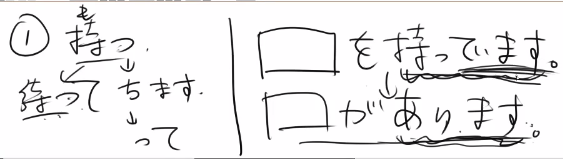 ① 持つ
も
待って ちます.
って
を持っています。
があります。